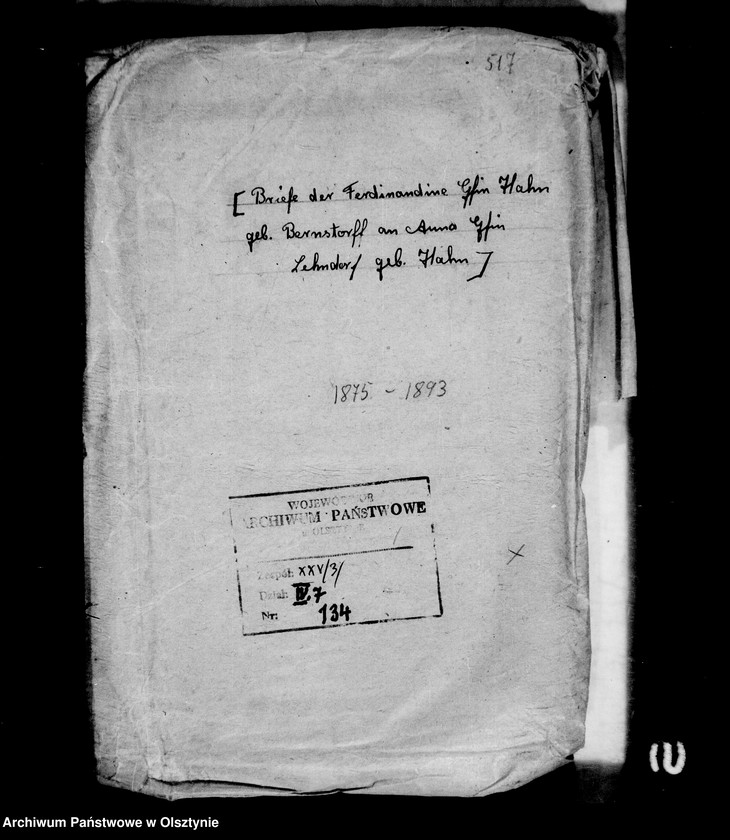 517
[ Briefe der Ferdinandine Gfin Hahn
geb. Bernstorff an Anna Gfin
Lehndorf geb. Hahn ]
1875 - 1893
ARCHIWUM PAŃSTWOWE
Zespół: XXV/3/
Dział: IV.7
Nr: 134
x
Archiwum Państwowe w Olsztynie